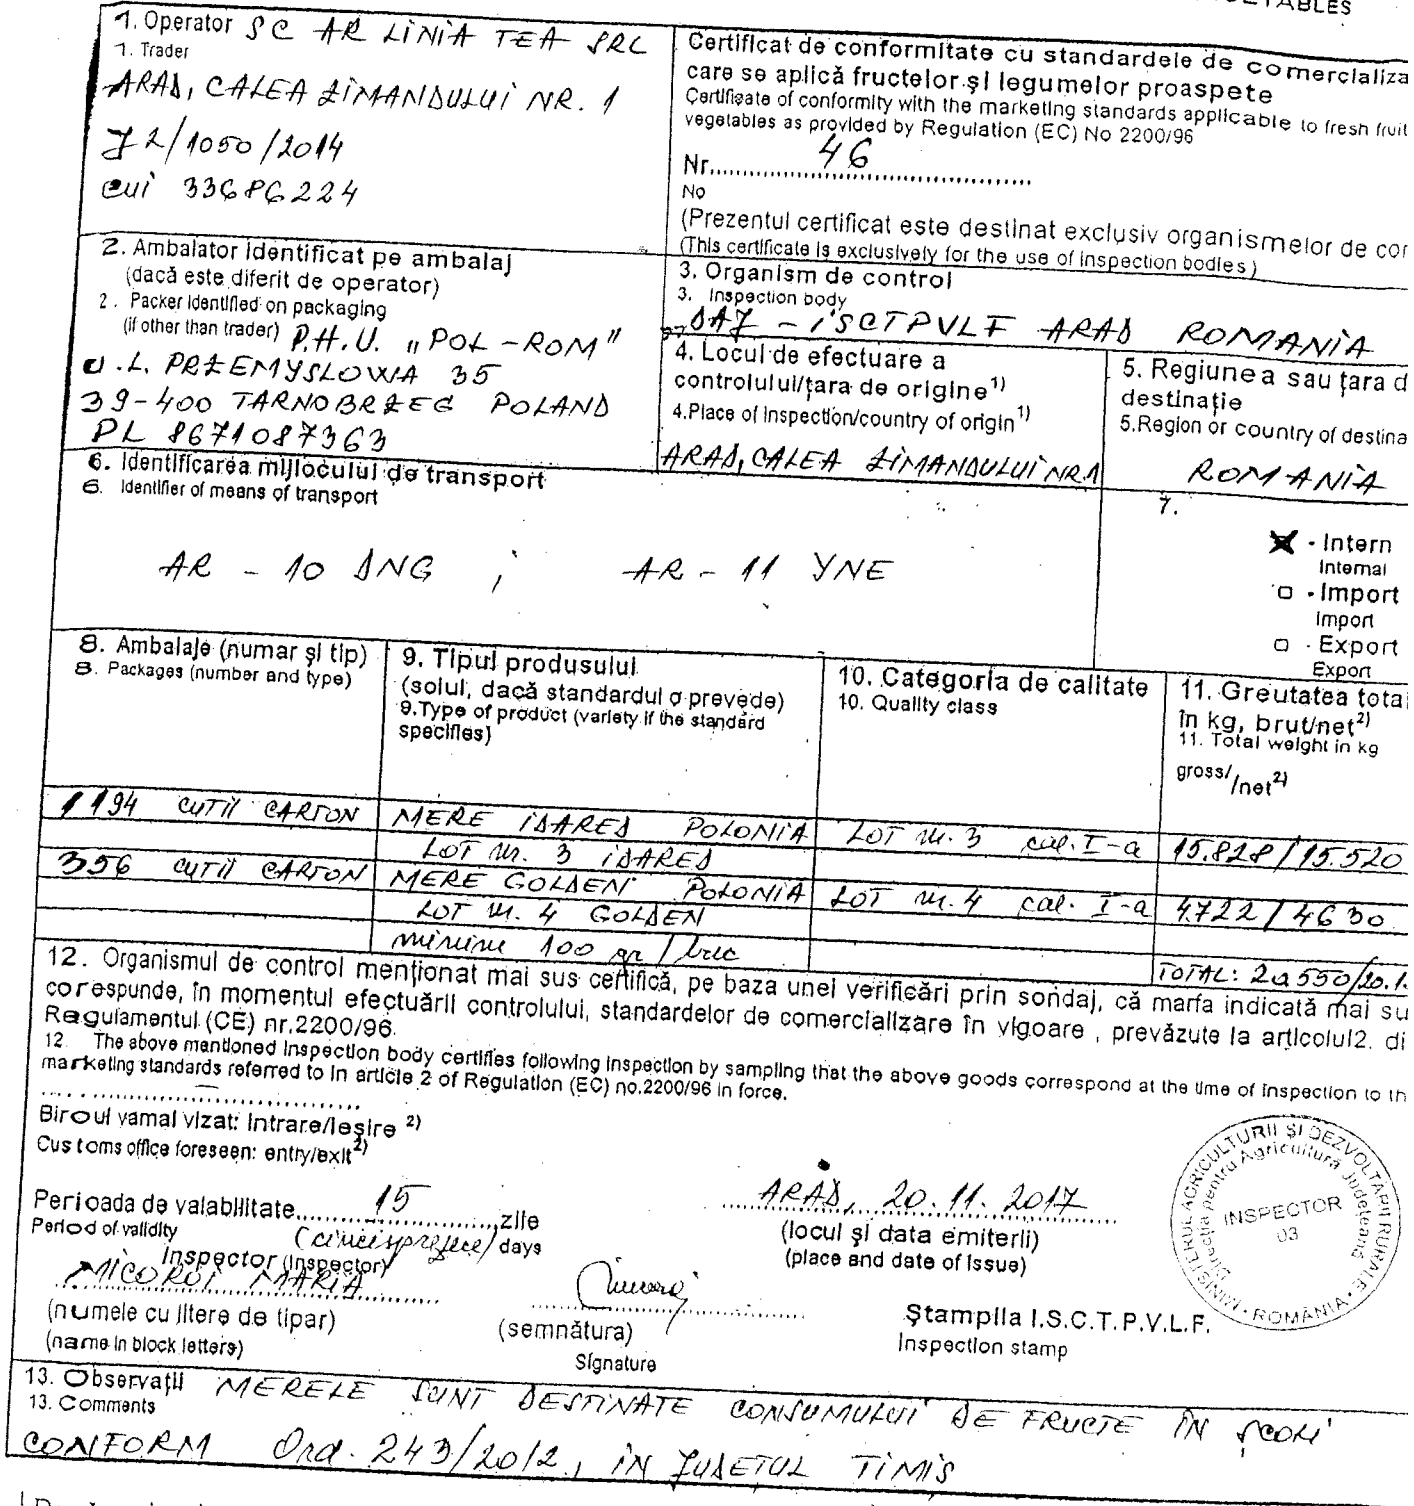 ABLES
1. Operator SC AR LINIA TEA SRL
1. Trader
ARAD, CALEA ZIMANDULUI NR. 1
J2/1050/2014
cui 33686224
Certificat de conformitate cu standardele de comercializa
care se aplică fructelor şi legumelor proaspete
Certificate of conformity with the marketing standards applicable to fresh fruit
vegetables as provided by Regulation (EC) No 2200/96
Nr. 46
No
(Prezentul certificat este destinat exclusiv organismelor de co
(This certificate is exclusively for the use of inspection bodies)
2. Ambalator identificat pe ambalaj
(dacă este diferit de operator)
2. Packer identified on packaging
(if other than trader) P.H.U. "POL-ROM"
U.L. PRZEMYSLOWA 35
39-400 TARNOBRZEG POLAND
PL 8671087363
3. Organism de control
3. Inspection body
DAJ - ISCTPVLF ARAD ROMANIA
4. Locul de efectuare a
controlului/ţara de origine1)
4.Place of inspection/country of origin1)
ARAD, CALEA ZIMANDULUI NR.1
5. Regiunea sau ţara d
destinaţie
5.Region or country of destina
ROMANIA
6. Identificarea mijlocului de transport
6. Identifier of means of transport
AR - 10 DNG ; AR - 11 YNE
7.
- Intern
Internal
- Import
Import
- Export
Export
8. Ambalaje (numar şi tip)
8. Packages (number and type)
9. Tipul produsului
(soiul, dacă standardul o prevede)
9.Type of product (variety if the standard
specifies)
10. Categoria de calitate
10. Quality class
11. Greutatea total
în kg, brut/net2)
11. Total weight in kg
gross/ /net2)
1194 CUTII CARTON MERE IDARED POLONIA LOT nr. 3 cal. I-a 15.828/15.520
LOT nr. 3 IDARED
356 CUTII CARTON MERE GOLDEN POLONIA LOT nr. 4 cal. I-a 4.722/4630
LOT nr. 4 GOLDEN
minim 100 gr/buc
TOTAL: 20550/20.1
12. Organismul de control menţionat mai sus certifică, pe baza unei verificări prin sondaj, că marfa indicată mai su
corespunde, în momentul efectuării controlului, standardelor de comercializare în vigoare , prevăzute la articolul2. di
Regulamentul (CE) nr.2200/96.
12. The above mentioned inspection body certifies following inspection by sampling that the above goods correspond at the time of inspection to th
marketing standards referred to in article 2 of Regulation (EC) no.2200/96 in force.
Biroul vamal vizat: intrare/ieşire 2)
Customs office foreseen: entry/exit2)
Perioada de valabilitate 15 zile
Period of validity (cincisprezece) days
Inspector (Inspector)
MICOROI MARIA
(numele cu litere de tipar)
(name in block letters)
(semnătura)
Signature
ARAD, 20.11.2017
(locul şi data emiterii)
(place and date of issue)
Ştampila I.S.C.T.P.V.L.F.
Inspection stamp
MINISTERUL AGRICULTURII ŞI DEZVOLTĂRII RURALE
Direcţia pentru Agricultură Judeţeană
INSPECTOR
03
ROMÂNIA
13. Observaţii MERELE SUNT DESTINATE CONSUMULUI DE FRUCTE ÎN ŞCOLI
13. Comments
CONFORM Ord. 243/2012, ÎN JUDETUL TIMIS